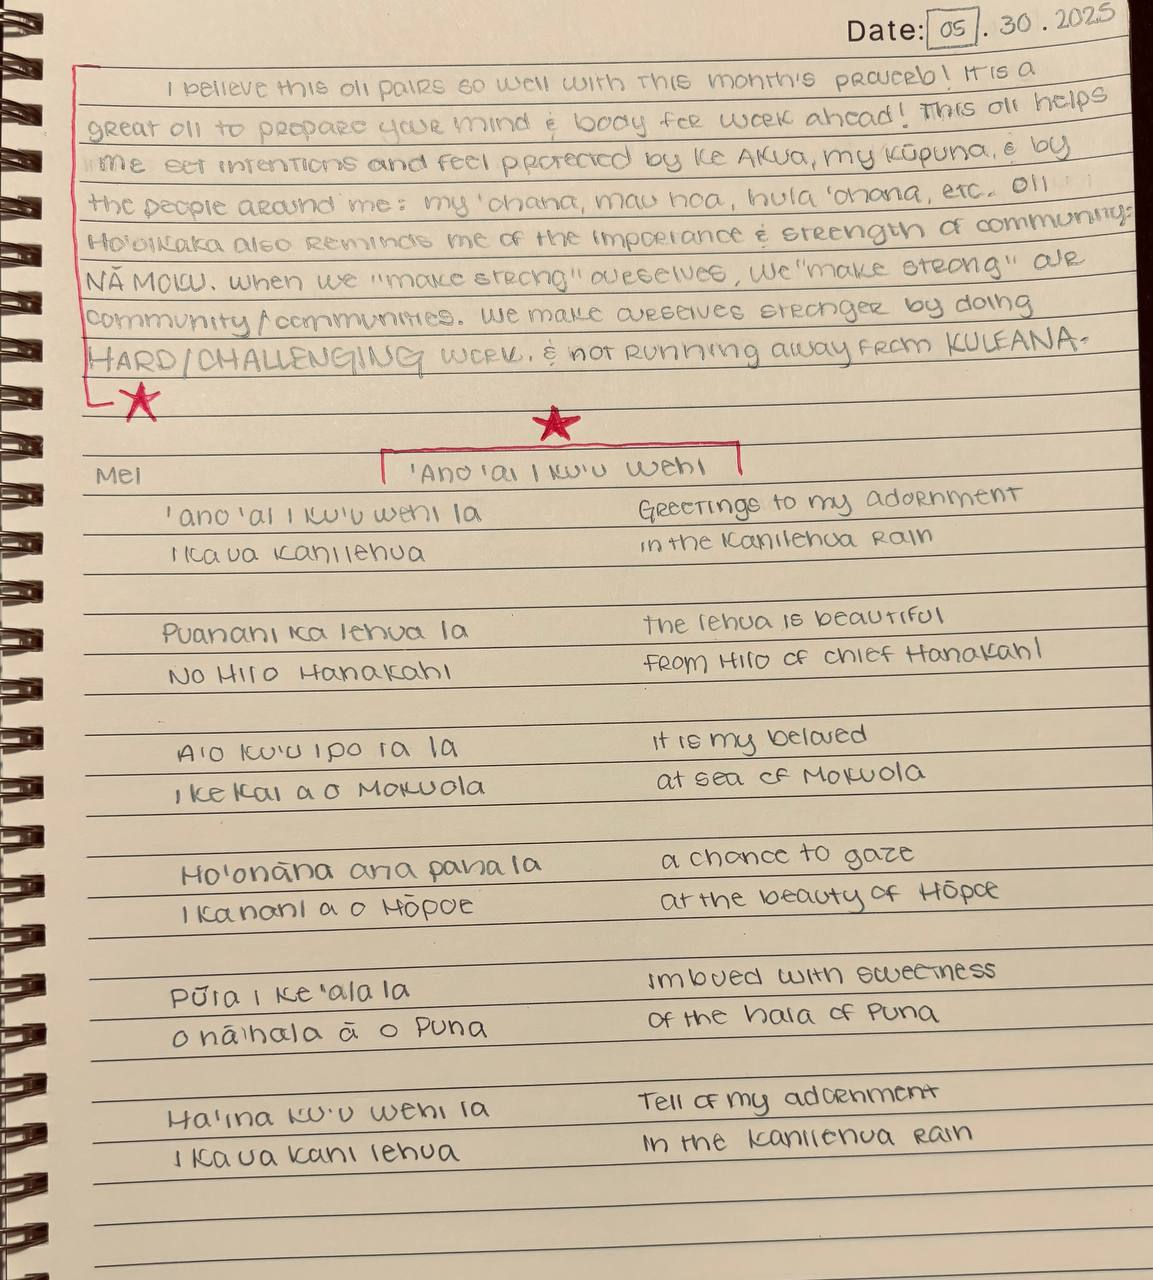 Date: 05 . 30 . 2025
I believe this oli pairs so well with this month's proverb! It is a
great oli to prepare your mind & body for work ahead! This oli helps
me set intentions and feel protected by Ke Akua, my Kūpuna, & by
the people around me: my 'ohana, mau hoa, hula 'ohana, etc. Oli
Ho'oikaka also reminds me of the importance & strength of community:
NĀ MOKU. When we "make strong" ourselves, we "make strong" our
community/communities. We make ourselves stronger by doing
HARD/CHALLENGING work. & not running away from KULEANA.
Mel 'Ano 'ai i ku'u wehi
'ano 'ai i ku'u wehi la Greetings to my adornment
i ka ua kanilehua in the Kanilehua Rain
Puanani ka lehua la the lehua is beautiful
No Hilo Hanakahi from Hilo of chief Hanakahi
A'o ku'u ipo la la it is my beloved
i ke kai a o Mokuola at sea of Mokuola
Ho'onāna ana pana la a chance to gaze
i ka nani a o Hōpoe at the beauty of Hōpoe
Pūia i ke 'ala la imbued with sweetness
o nā hala ā o Puna of the hala of Puna
Ha'ina ku'u wehi la Tell of my adornment
i ka ua kani lehua in the Kanilehua Rain